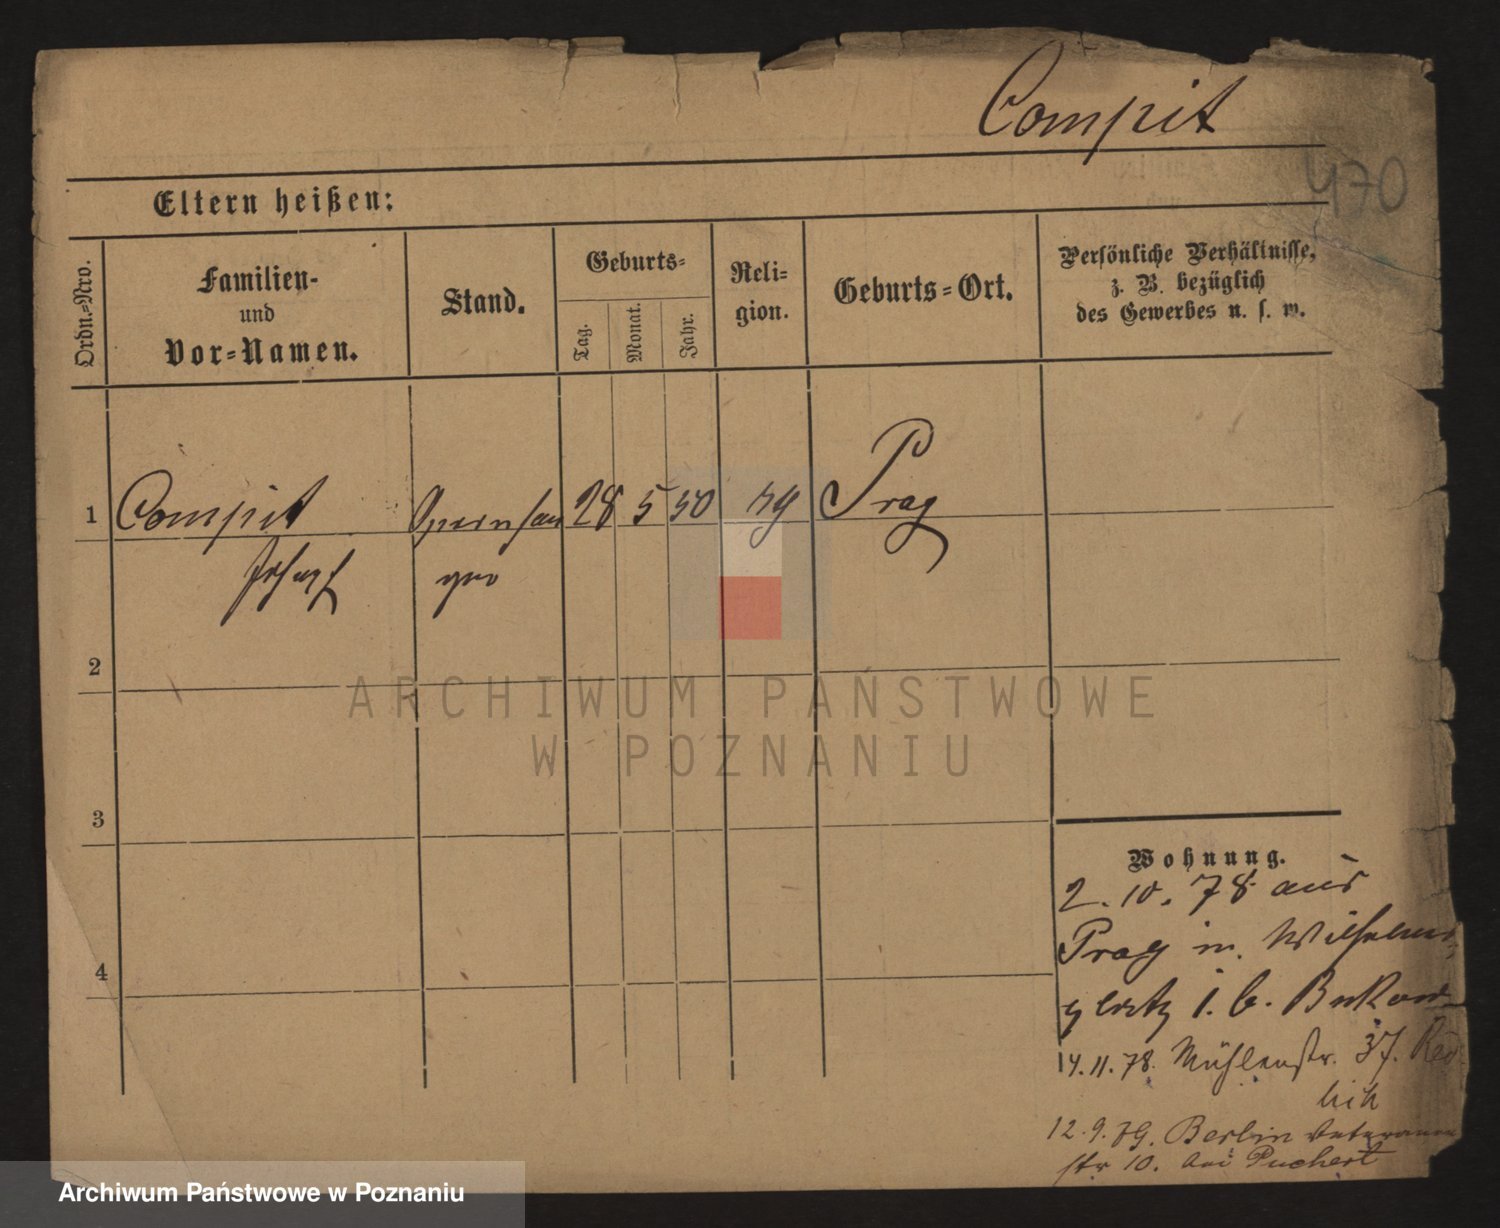 Compit
470
Eltern heißen:
Ordn.=Nro.
Familien-
und
Vor=Namen.
Stand.
Geburts=
Tag.
Monat.
Jahr.
Reli=
gion.
Geburts=Ort.
Persönliche Verhältnisse,
z. B. bezüglich
des Gewerbes u. s. w.
1 Compit Opernsän 28 5 50 Prag
Josepf ger
2
3
4
Wohnung.
2. 10. 78 aus
Prag in. Wilhelms
platz 1. b.
14. 11. 78. Mühlenstr. 37. Red
lich
12. 9. 79. Berlin Veteranen
str 10. bei Puchert
ARCHIWUM PAŃSTWOWE
W POZNANIU
Archiwum Państwowe w Poznaniu